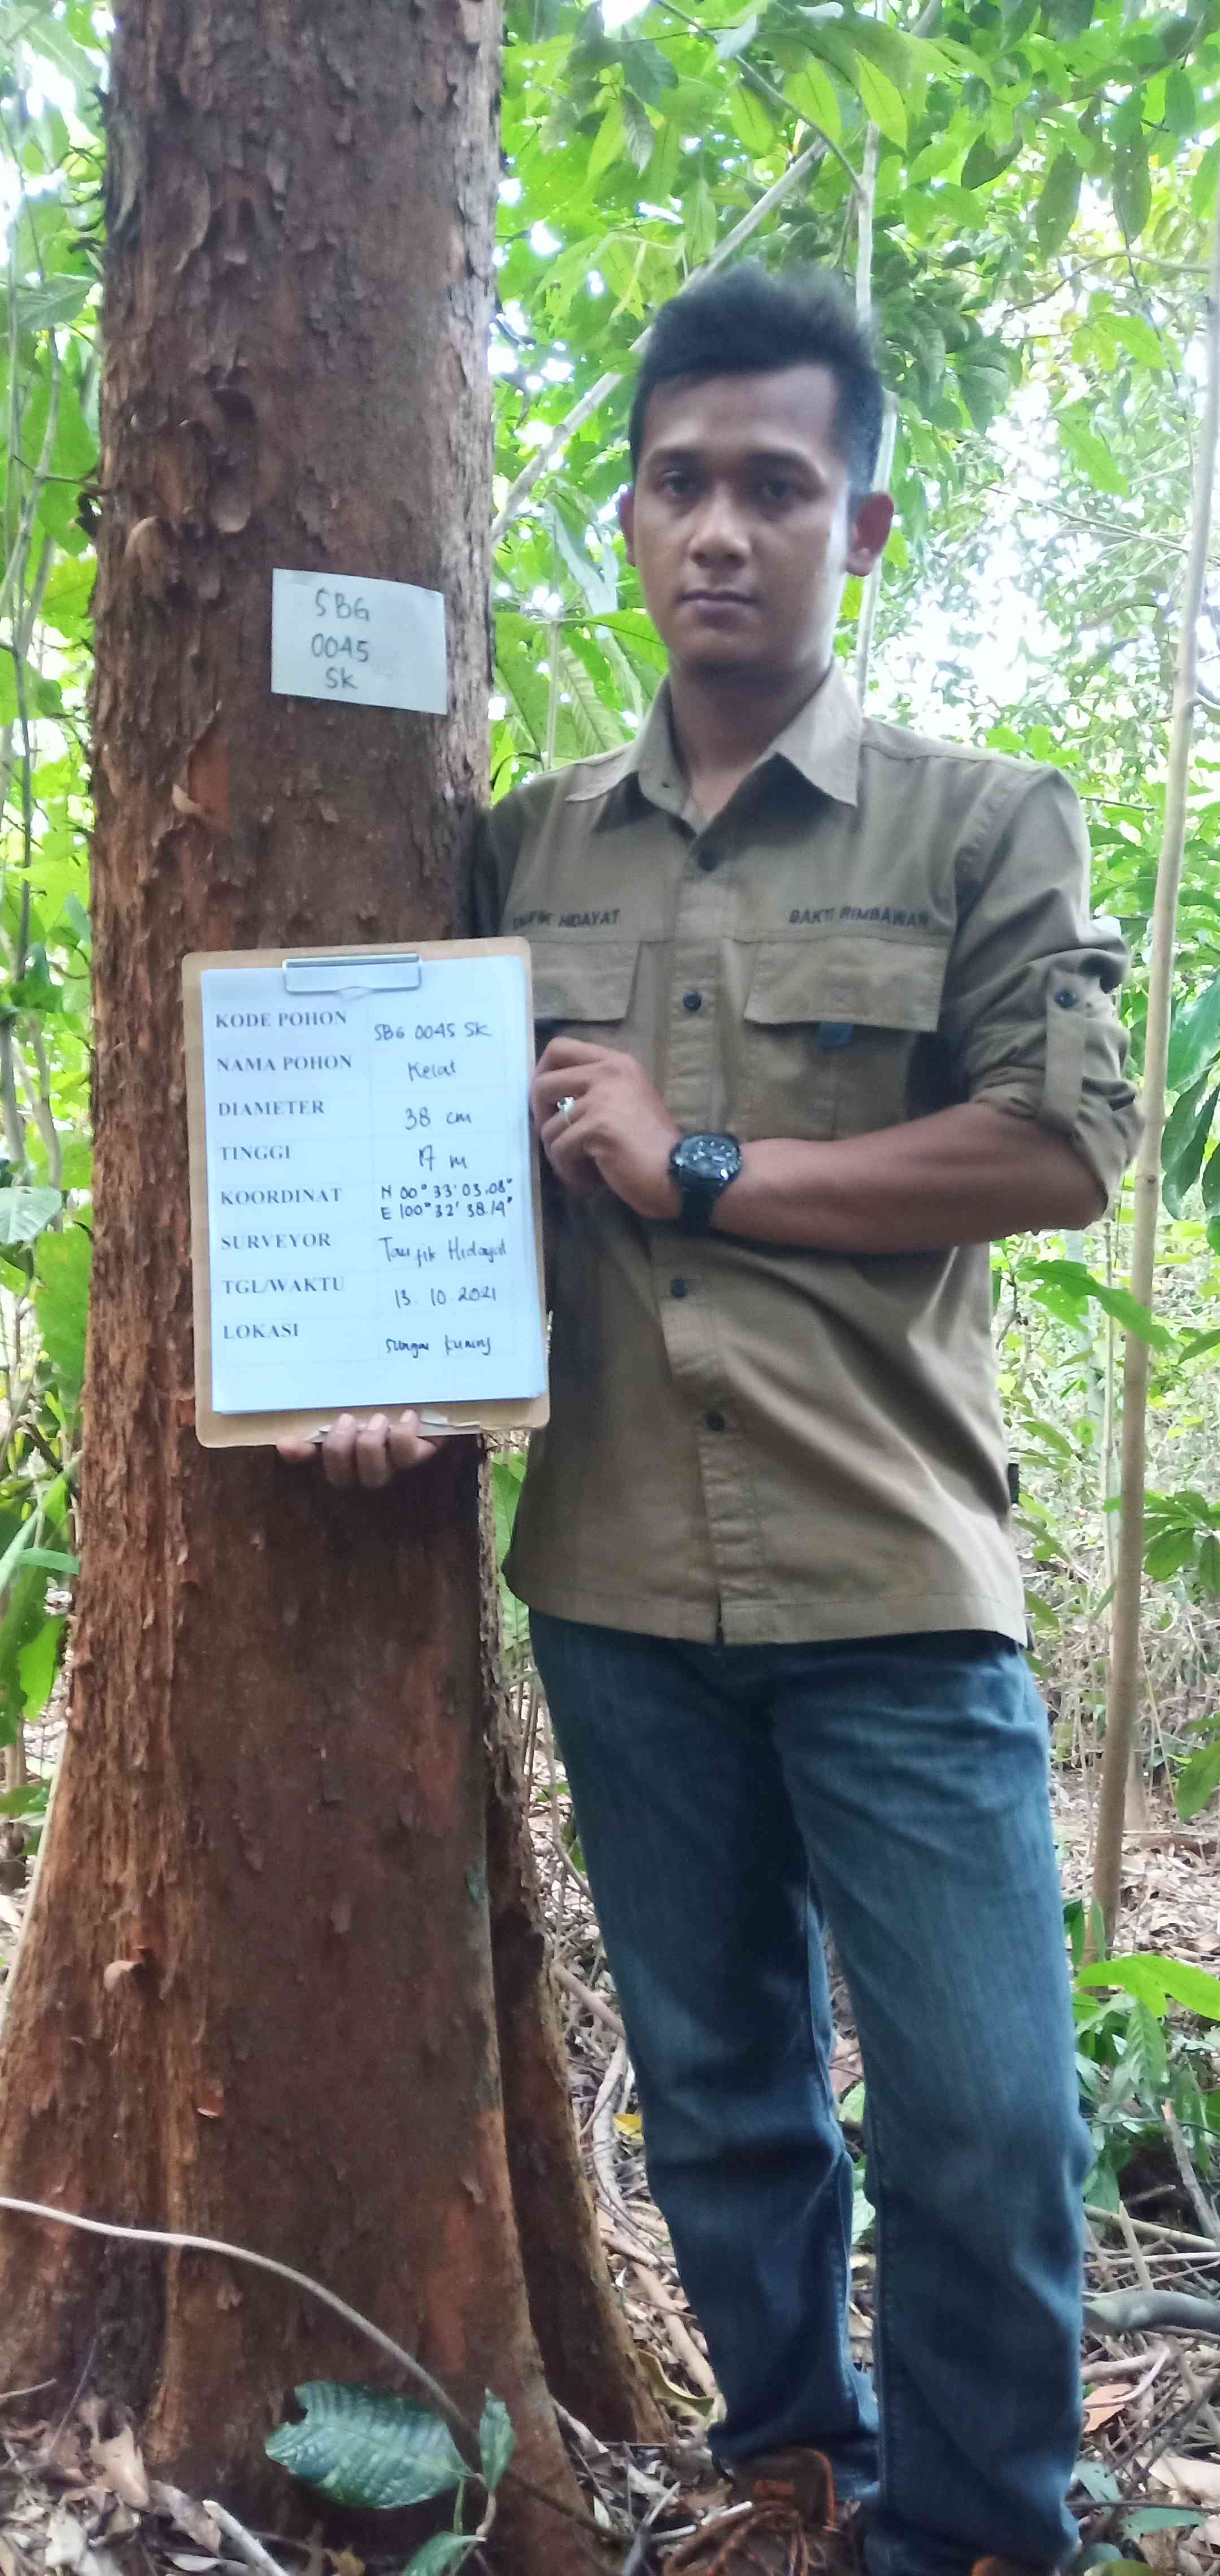 SBG
0045
SK
TAUFIK HIDAYAT
BAKTI RIMBAWAN
KODE POHON SBG 0045 SK
NAMA POHON Kelat
DIAMETER 38 cm
TINGGI 17 m
KOORDINAT N 00° 33' 03.08"
E 100° 32' 38.14"
SURVEYOR Taufik Hidayat
TGL/WAKTU 13.10.2021
LOKASI Sungai Kuning